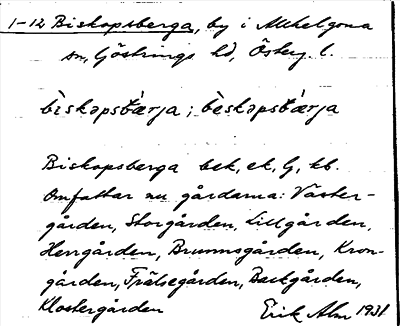 1-12 Biskopsberga, by i Allhelgona
sn, Göstrings hd, Österg. l.
bìskəpsbæ̀rja; bèskəpsbæ̀rja
Biskopsberga bek, ek, G, kb.
Omfattar nu gårdarna: Väster-
gården, Storgården, Lillgården,
Herrgården, Brunnsgården, Kron-
gården, Frälsegården, Backgården,
Klostergården Erik Alm 1931